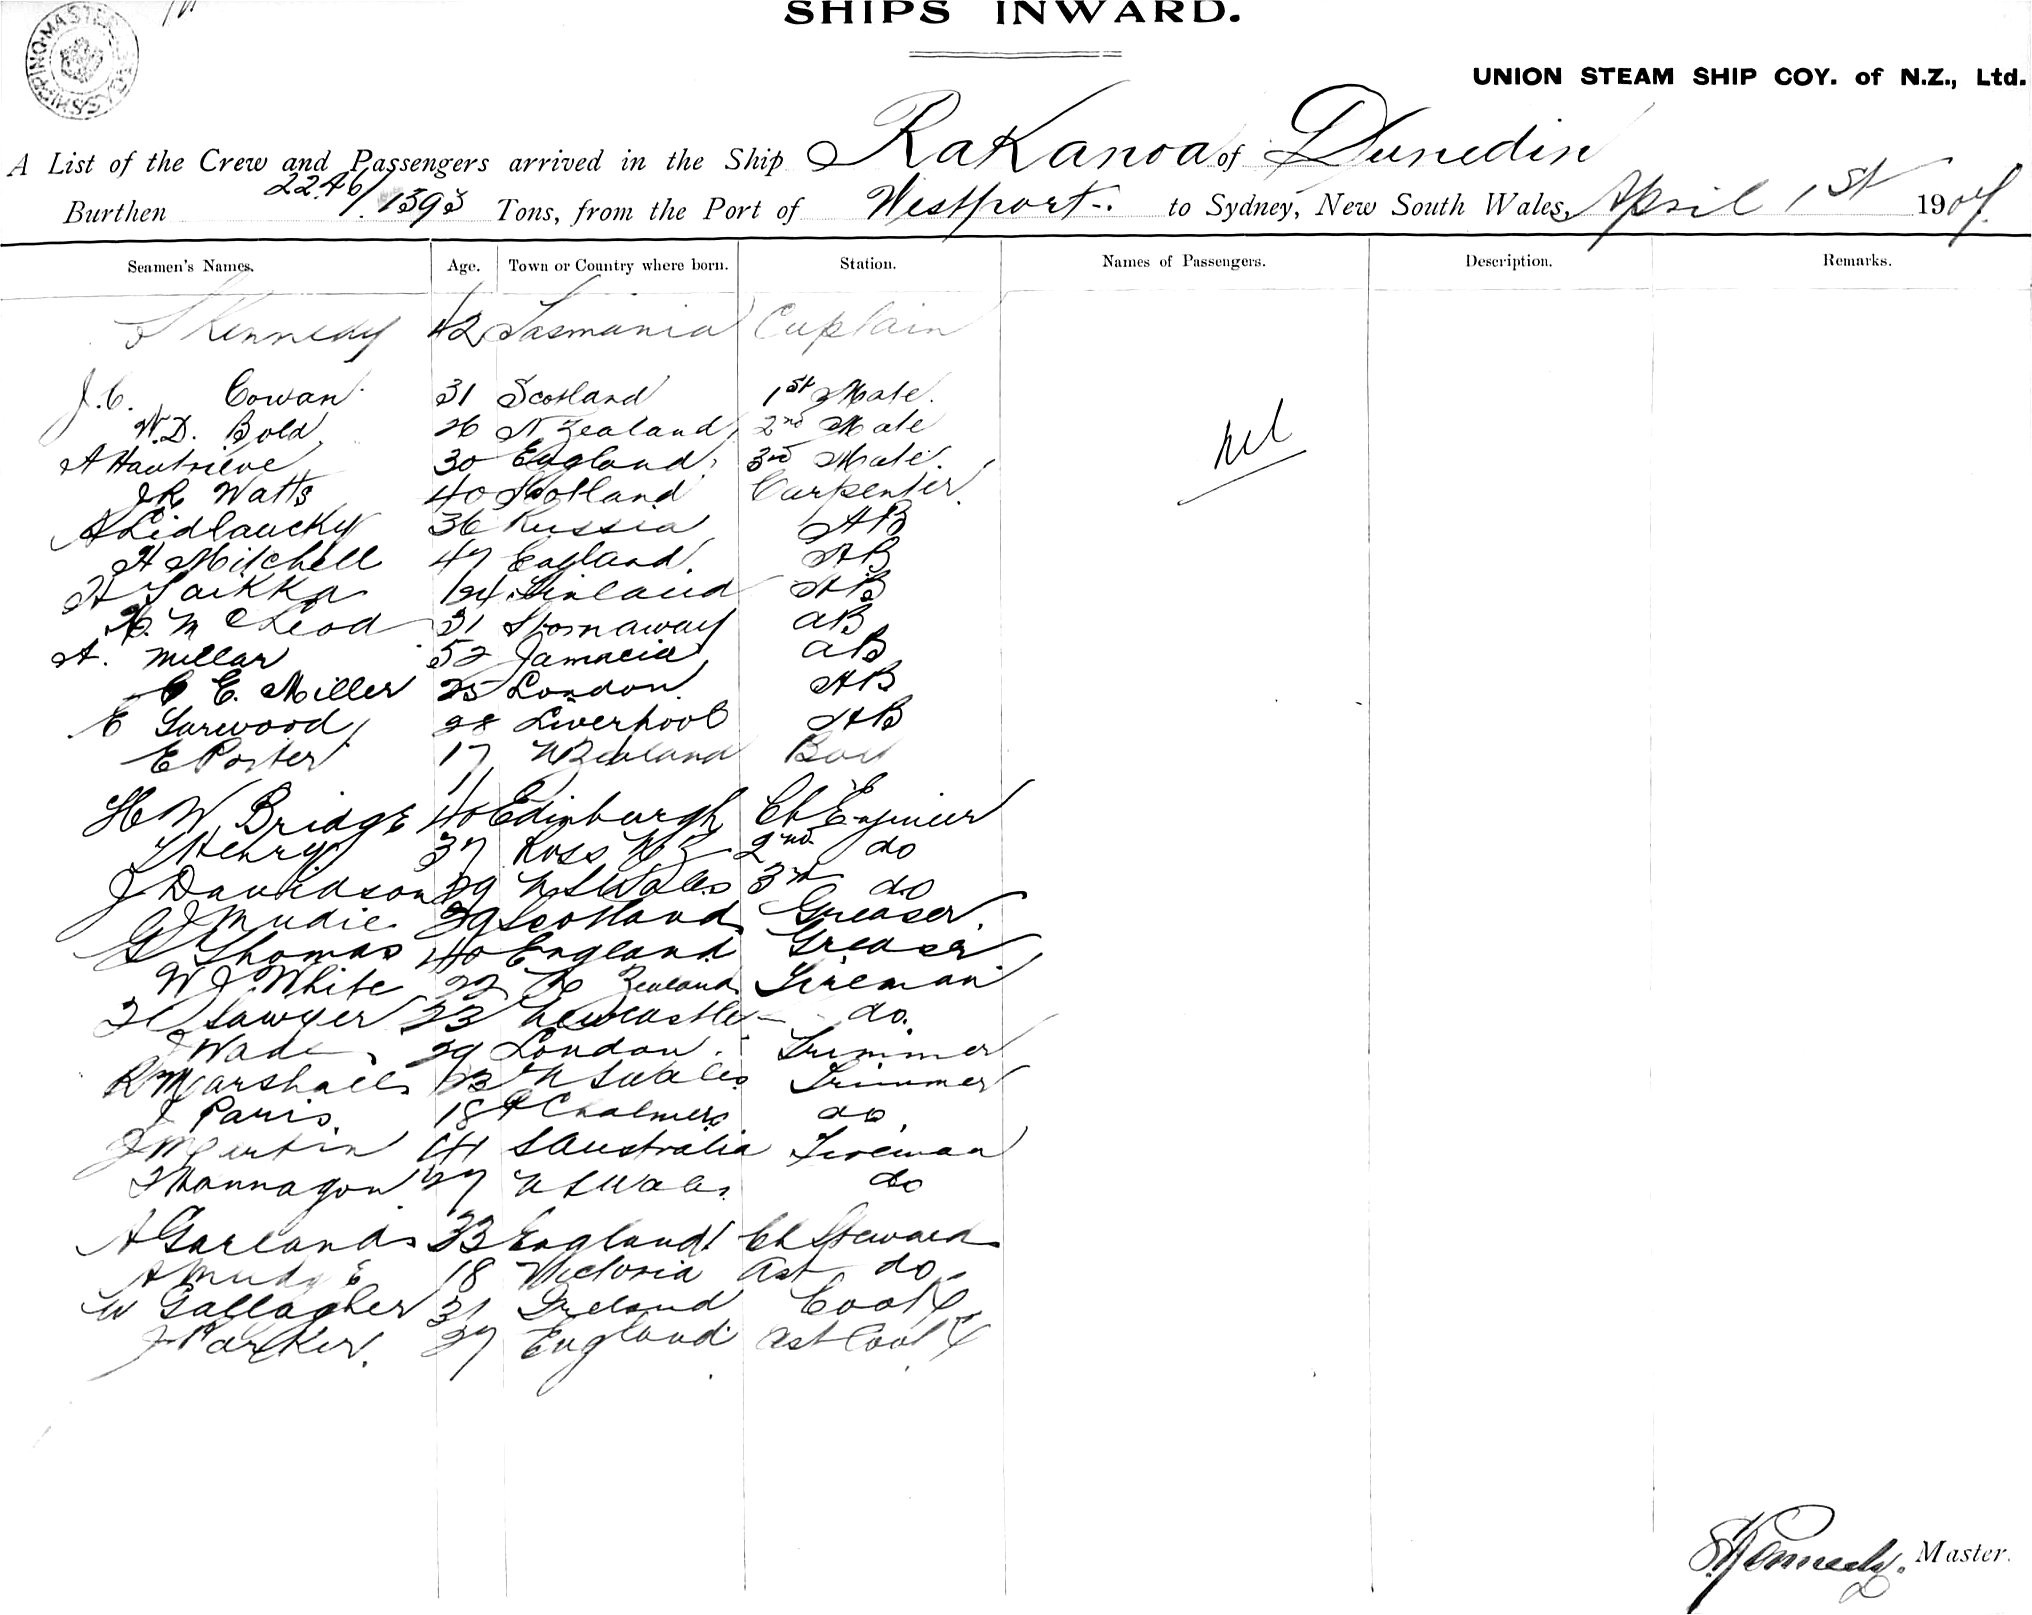 SHIPS INWARD.
UNION STEAM SHIP COY. of N.Z., Ltd.
A List of the Crew and Passengers arrived in the Ship RaKanoa of Dunedin
Burthen 2246/1393 Tons, from the Port of Westport to Sydney, New South Wales, April 1st 1904
Seamen's Names. Age. Town or Country where born. Station. Names of Passengers. Description. Remarks.
Kennedy 42 Tasmania Captain
J.C. Cowan 31 Scotland 1st Mate.
W.D. Bold 26 N Zealand 2nd Mate
A Hautrieve 30 England 3rd Mate.
nil
JR Watts 40 Scotland Carpenter
A Lidlaucky 36 Russia AB
H Mitchell 47 England. AB
24 Finland AB
McLeod 31 Stornaway AB
A. Millar 52 Jamacia AB
C E. Miller 25 London AB
E Garwood 28 Liverpool AB
E Porter 17 N Zealand Boy
H W Bridge 40 Edinburgh Ch Engineer
Henry 37 Ross NZ 2nd do
J Davidson 29 N S Wales 3rd do
J Mudie 29 Scotland Greaser
G Thomas 40 England Greaser
W J White 22 N Zealand Fireman
Sawyer 23 Newcastle do.
J Wade 29 London Trimmer
R Marshall 23 N S Wales Trimmer
J Paris 18 Pt Chalmers do
J Martin 41 S Australia Fireman
27 N S Wales do
A Garland 33 England Ch Steward
A Mudge 18 Victoria Ast do
W Gallagher 31 Ireland Cook
J Parker. 27 England Ast Cook
S Kennedy. Master.